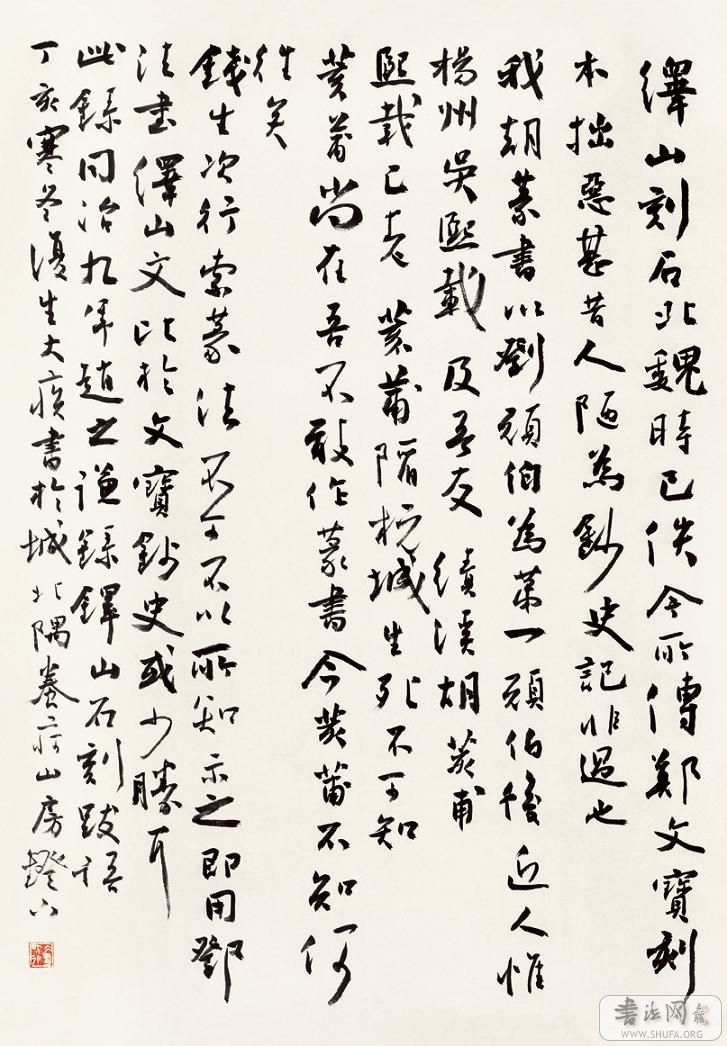 繹山刻石北魏時已佚今所傳鄭文寶刻
本拙惡甚昔人陋為鈔史記非過也
我朝篆書以鄧頑伯為第一頑伯後近人惟
楊州吳熙載及吾友績溪胡荄甫
熙載已老荄甫陷杭城生死不可知
荄甫尚在吾不敢作篆書今荄甫不知何
往矣
錢生次行索篆法不可不以所知示之即用鄧
法書繹山文比於文寶鈔史或少勝耳
此錄同治九年趙之謙錄繹山石刻跋語
丁亥寒冬優生大痴書於城北隅養疴山房燈下
書法网
WWW.SHUFA.ORG